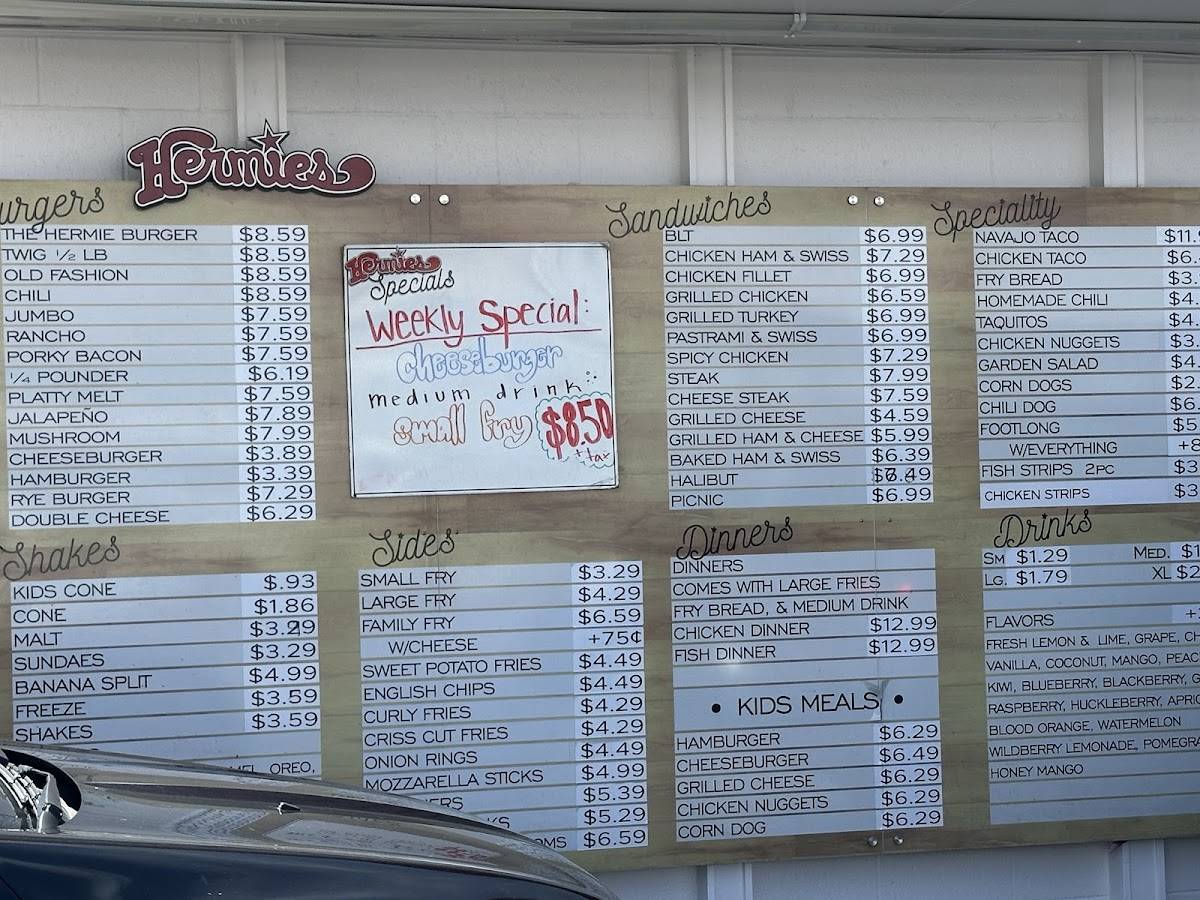 Hermies
urgers
THE HERMIE BURGER $8.59
TWIG 1/2 LB $8.59
OLD FASHION $8.59
CHILI $8.59
JUMBO $7.59
RANCHO $7.59
PORKY BACON $7.59
1/4 POUNDER $6.19
PLATTY MELT $7.59
JALAPEÑO $7.89
MUSHROOM $7.99
CHEESEBURGER $3.89
HAMBURGER $3.39
RYE BURGER $7.29
DOUBLE CHEESE $6.29
Hermies
Specials
Weekly Special:
Cheeseburger
medium drink
small fry $8.50
+ tax
Sandwiches
BLT $6.99
CHICKEN HAM & SWISS $7.29
CHICKEN FILLET $6.99
GRILLED CHICKEN $6.59
GRILLED TURKEY $6.99
PASTRAMI & SWISS $6.99
SPICY CHICKEN $7.29
STEAK $7.99
CHEESE STEAK $7.59
GRILLED CHEESE $4.59
GRILLED HAM & CHEESE $5.99
BAKED HAM & SWISS $6.39
HALIBUT
PICNIC $6.99
Speciality
NAVAJO TACO $11.
CHICKEN TACO $6.
FRY BREAD $3.
HOMEMADE CHILI $4.
TAQUITOS $4.
CHICKEN NUGGETS $3.
GARDEN SALAD $4.
CORN DOGS $2.
CHILI DOG $6
FOOTLONG $5
W/EVERYTHING +8
FISH STRIPS 2PC $3
CHICKEN STRIPS $3
Shakes
KIDS CONE $.93
CONE $1.86
MALT
SUNDAES $3.29
BANANA SPLIT $4.99
FREEZE $3.59
SHAKES $3.59
OREO,
Sides
SMALL FRY $3.29
LARGE FRY $4.29
FAMILY FRY $6.59
W/CHEESE +75¢
SWEET POTATO FRIES $4.49
ENGLISH CHIPS $4.49
CURLY FRIES $4.29
CRISS CUT FRIES $4.29
ONION RINGS $4.49
MOZZARELLA STICKS $4.99
ERS $5.39
KS $5.29
OMS $6.59
Dinners
DINNERS
COMES WITH LARGE FRIES
FRY BREAD, & MEDIUM DRINK
CHICKEN DINNER $12.99
FISH DINNER $12.99
• KIDS MEALS •
HAMBURGER $6.29
CHEESEBURGER $6.49
GRILLED CHEESE $6.29
CHICKEN NUGGETS $6.29
CORN DOG $6.29
Drinks
SM $1.29 MED. $1
LG. $1.79 XL $2
FLAVORS +
FRESH LEMON & LIME, GRAPE, CH
VANILLA, COCONUT, MANGO, PEAC
KIWI, BLUEBERRY, BLACKBERRY, G
RASPBERRY, HUCKLEBERRY, APRIC
BLOOD ORANGE, WATERMELON
WILDBERRY LEMONADE, POMEGRA
HONEY MANGO